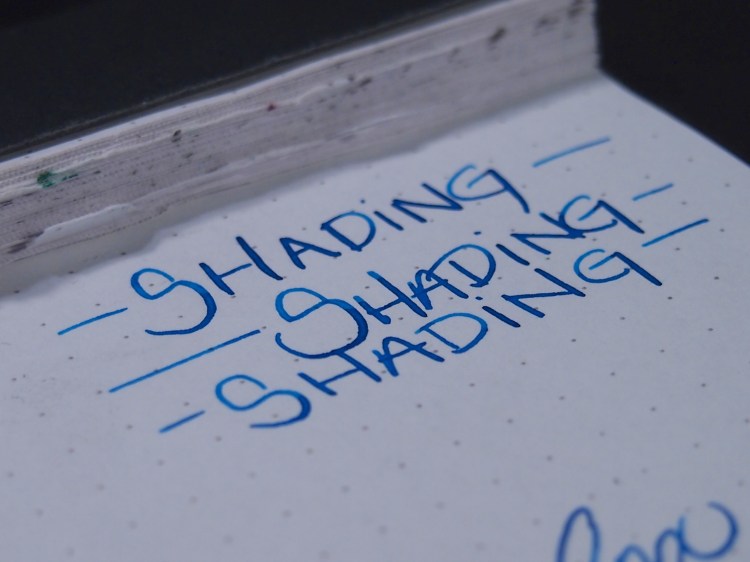 - SHADiNG -
- SHADiNG -
- SHADiNG -